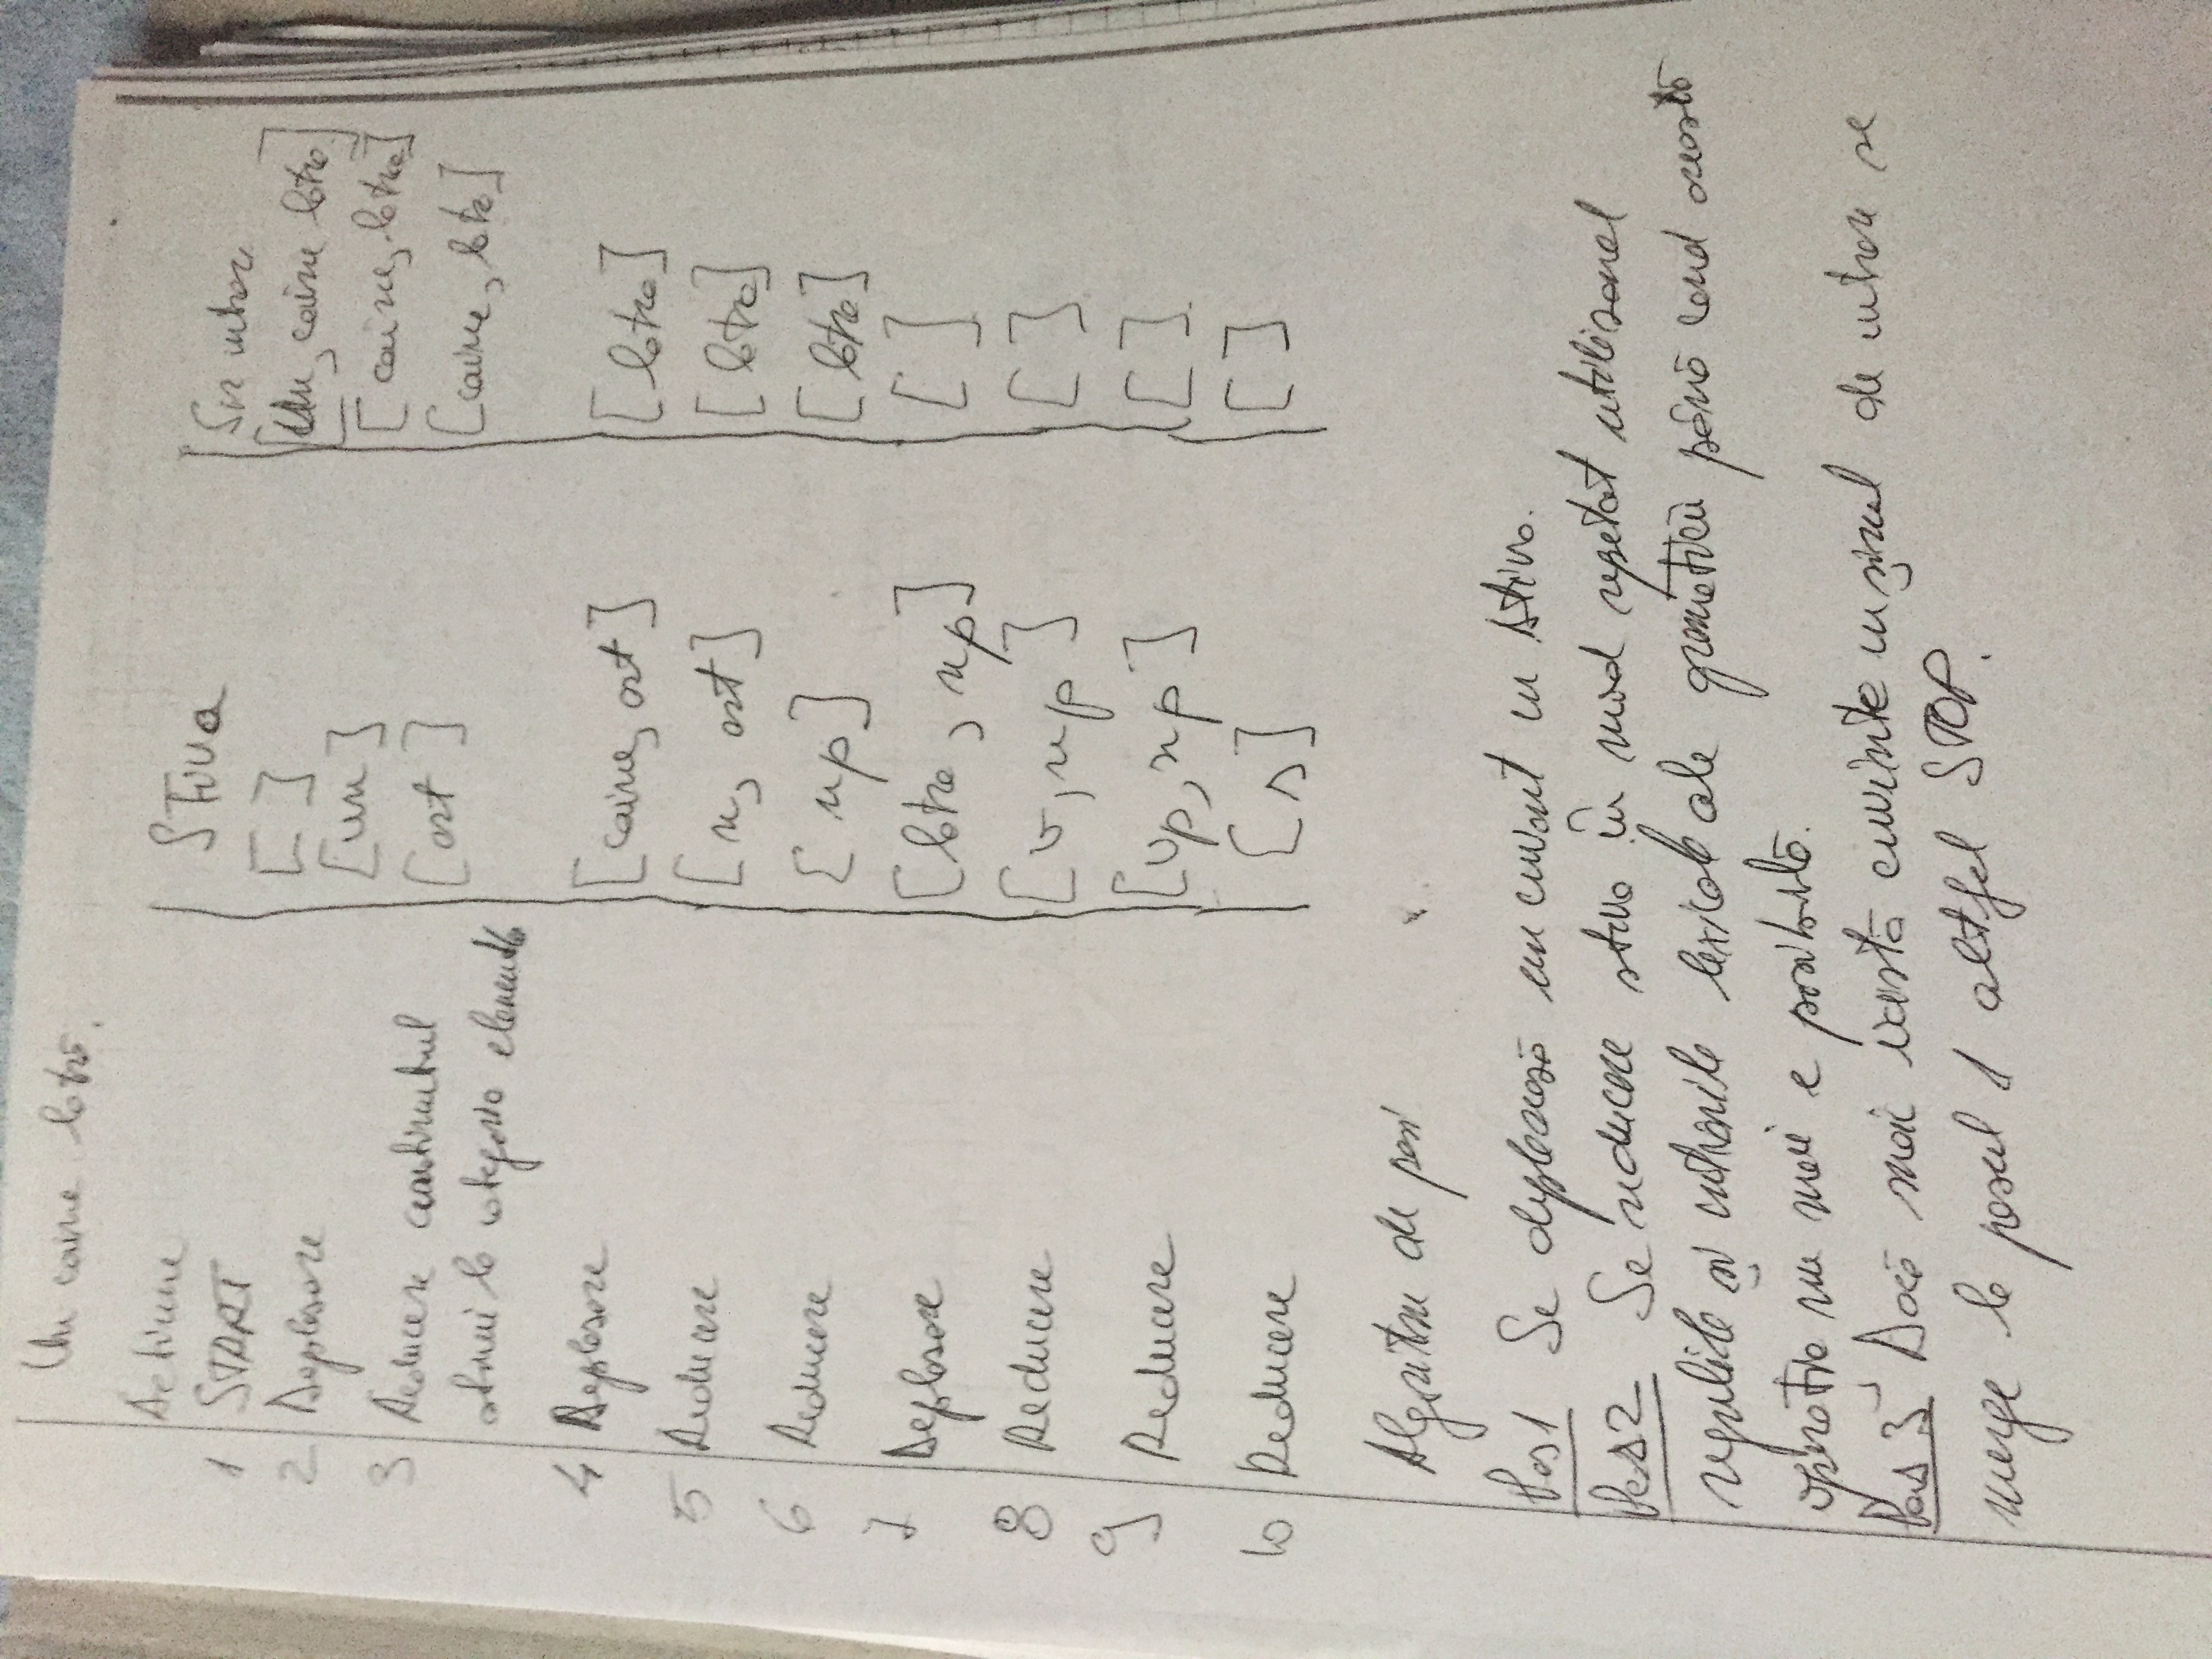 Un caine latră.
Actiune | STiva | Sir intrare
1 START | [ ] | [Un, caine latra]
2 Deplasare | [un] | [caine, latra]
3 Reducere continutul | [art] | [caine, latra]
stivei la categoria elementelor
4 Deplasare | [caine, art] | [latra]
5 Reducere | [n, art] | [latra]
6 Reducere | [np] | [latra]
7 Deplasare | [latra, np] | [ ]
8 Reducere | [v, np] | [ ]
9 Reducere | [vp, np] | [ ]
10 Reducere | [s] | [ ]
Algoritm de pasi
Pas 1 Se deplasează un cuvant in stiva.
Pas 2 Se reducere stiva în mod repetat utilizand
regulile și intrarile lexicale ale gramaticii până cand această
operație nu mai e posibilă.
Pas 3 Dacă mai există cuvinte in șirul de intrare se
merge la pasul 1 altfel STOP.